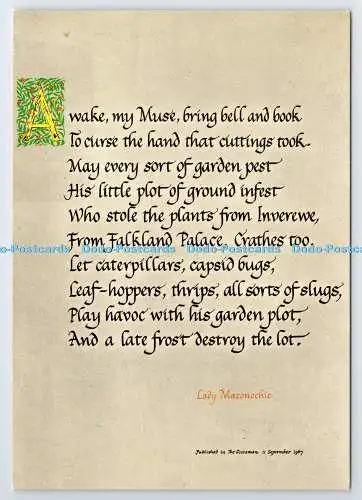 Awake, my Muse, bring bell and book
To curse the hand that cuttings took.
May every sort of garden pest
His little plot of ground infest
Who stole the plants from Inverewe,
From Falkland Palace, Crathes too,
Let caterpillars, capsid bugs,
Leaf-hoppers, thrips, all sorts of slugs,
Play havoc with his garden plot,
And a late frost destroy the lot.
Lady Maconochie
Published in The Scotsman 11 September 1967
Dodo-Postcards Dodo-Postcards Dodo-Postcards Dodo-Postcards